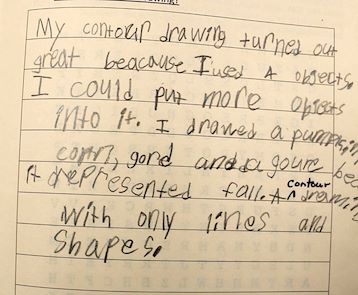 My contour drawing turned out
great beacause I used 4 objects.
I could put more objects
into it. I drawed a pumpkin,
corn, gord and a gourc bec
it represented fall. A contour drawing
with only lines and
shapes.